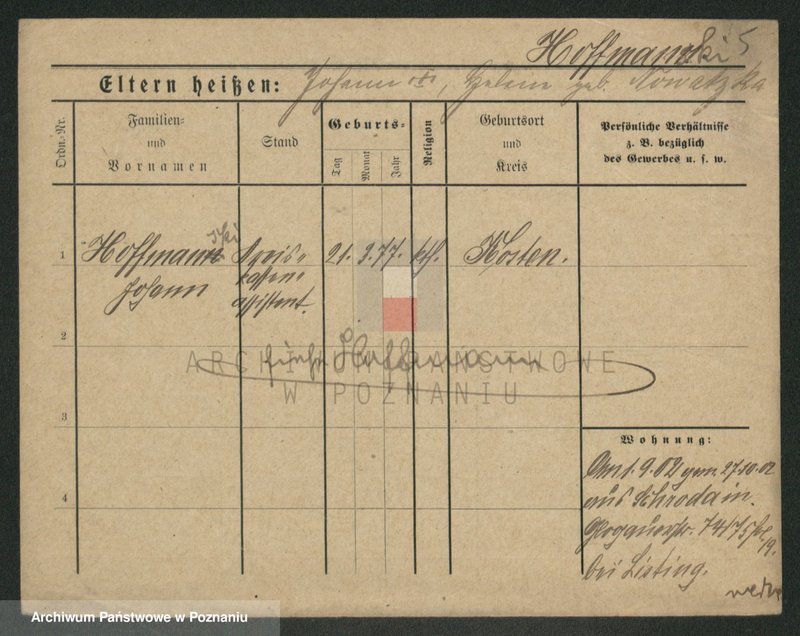 Hoffmannski 5
Eltern heißen: Johann, Helene geb. Nowatzka
Ordn.-Nr.
Familien-
und
Vornamen
Stand
Geburts-
Tag
Monat
Jahr
Religion
Geburtsort
und
Kreis
Persönliche Verhältnisse
z. B. bezüglich
des Gewerbes u. s. w.
ski
1 Hoffmann Kreis- 21. 3. 77. kth. Kosten.
Johann kassen-
assistent.
2
siehe Hoffmann
ARCHIWUM PAŃSTWOWE
W POZNANIU
3
4
Wohnung:
Am 1.9.02 gem. 27.10.02
aus Schroda in
Glogauerstr. 74/75
19.
bei Listing.
Archiwum Państwowe w Poznaniu